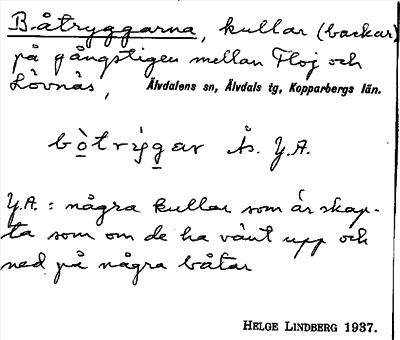 Båtryggarna, kullar (backar)
på gångstigen mellan Floj och
Lövnäs, Älvdalens sn, Älvdals tg, Kopparbergs län.
bòtrýgar Ås. Y.A.
Y.A.: några kullar som är skap-
ta som om de ha vänt upp och
ned på några båtar
HELGE LINDBERG 1937.